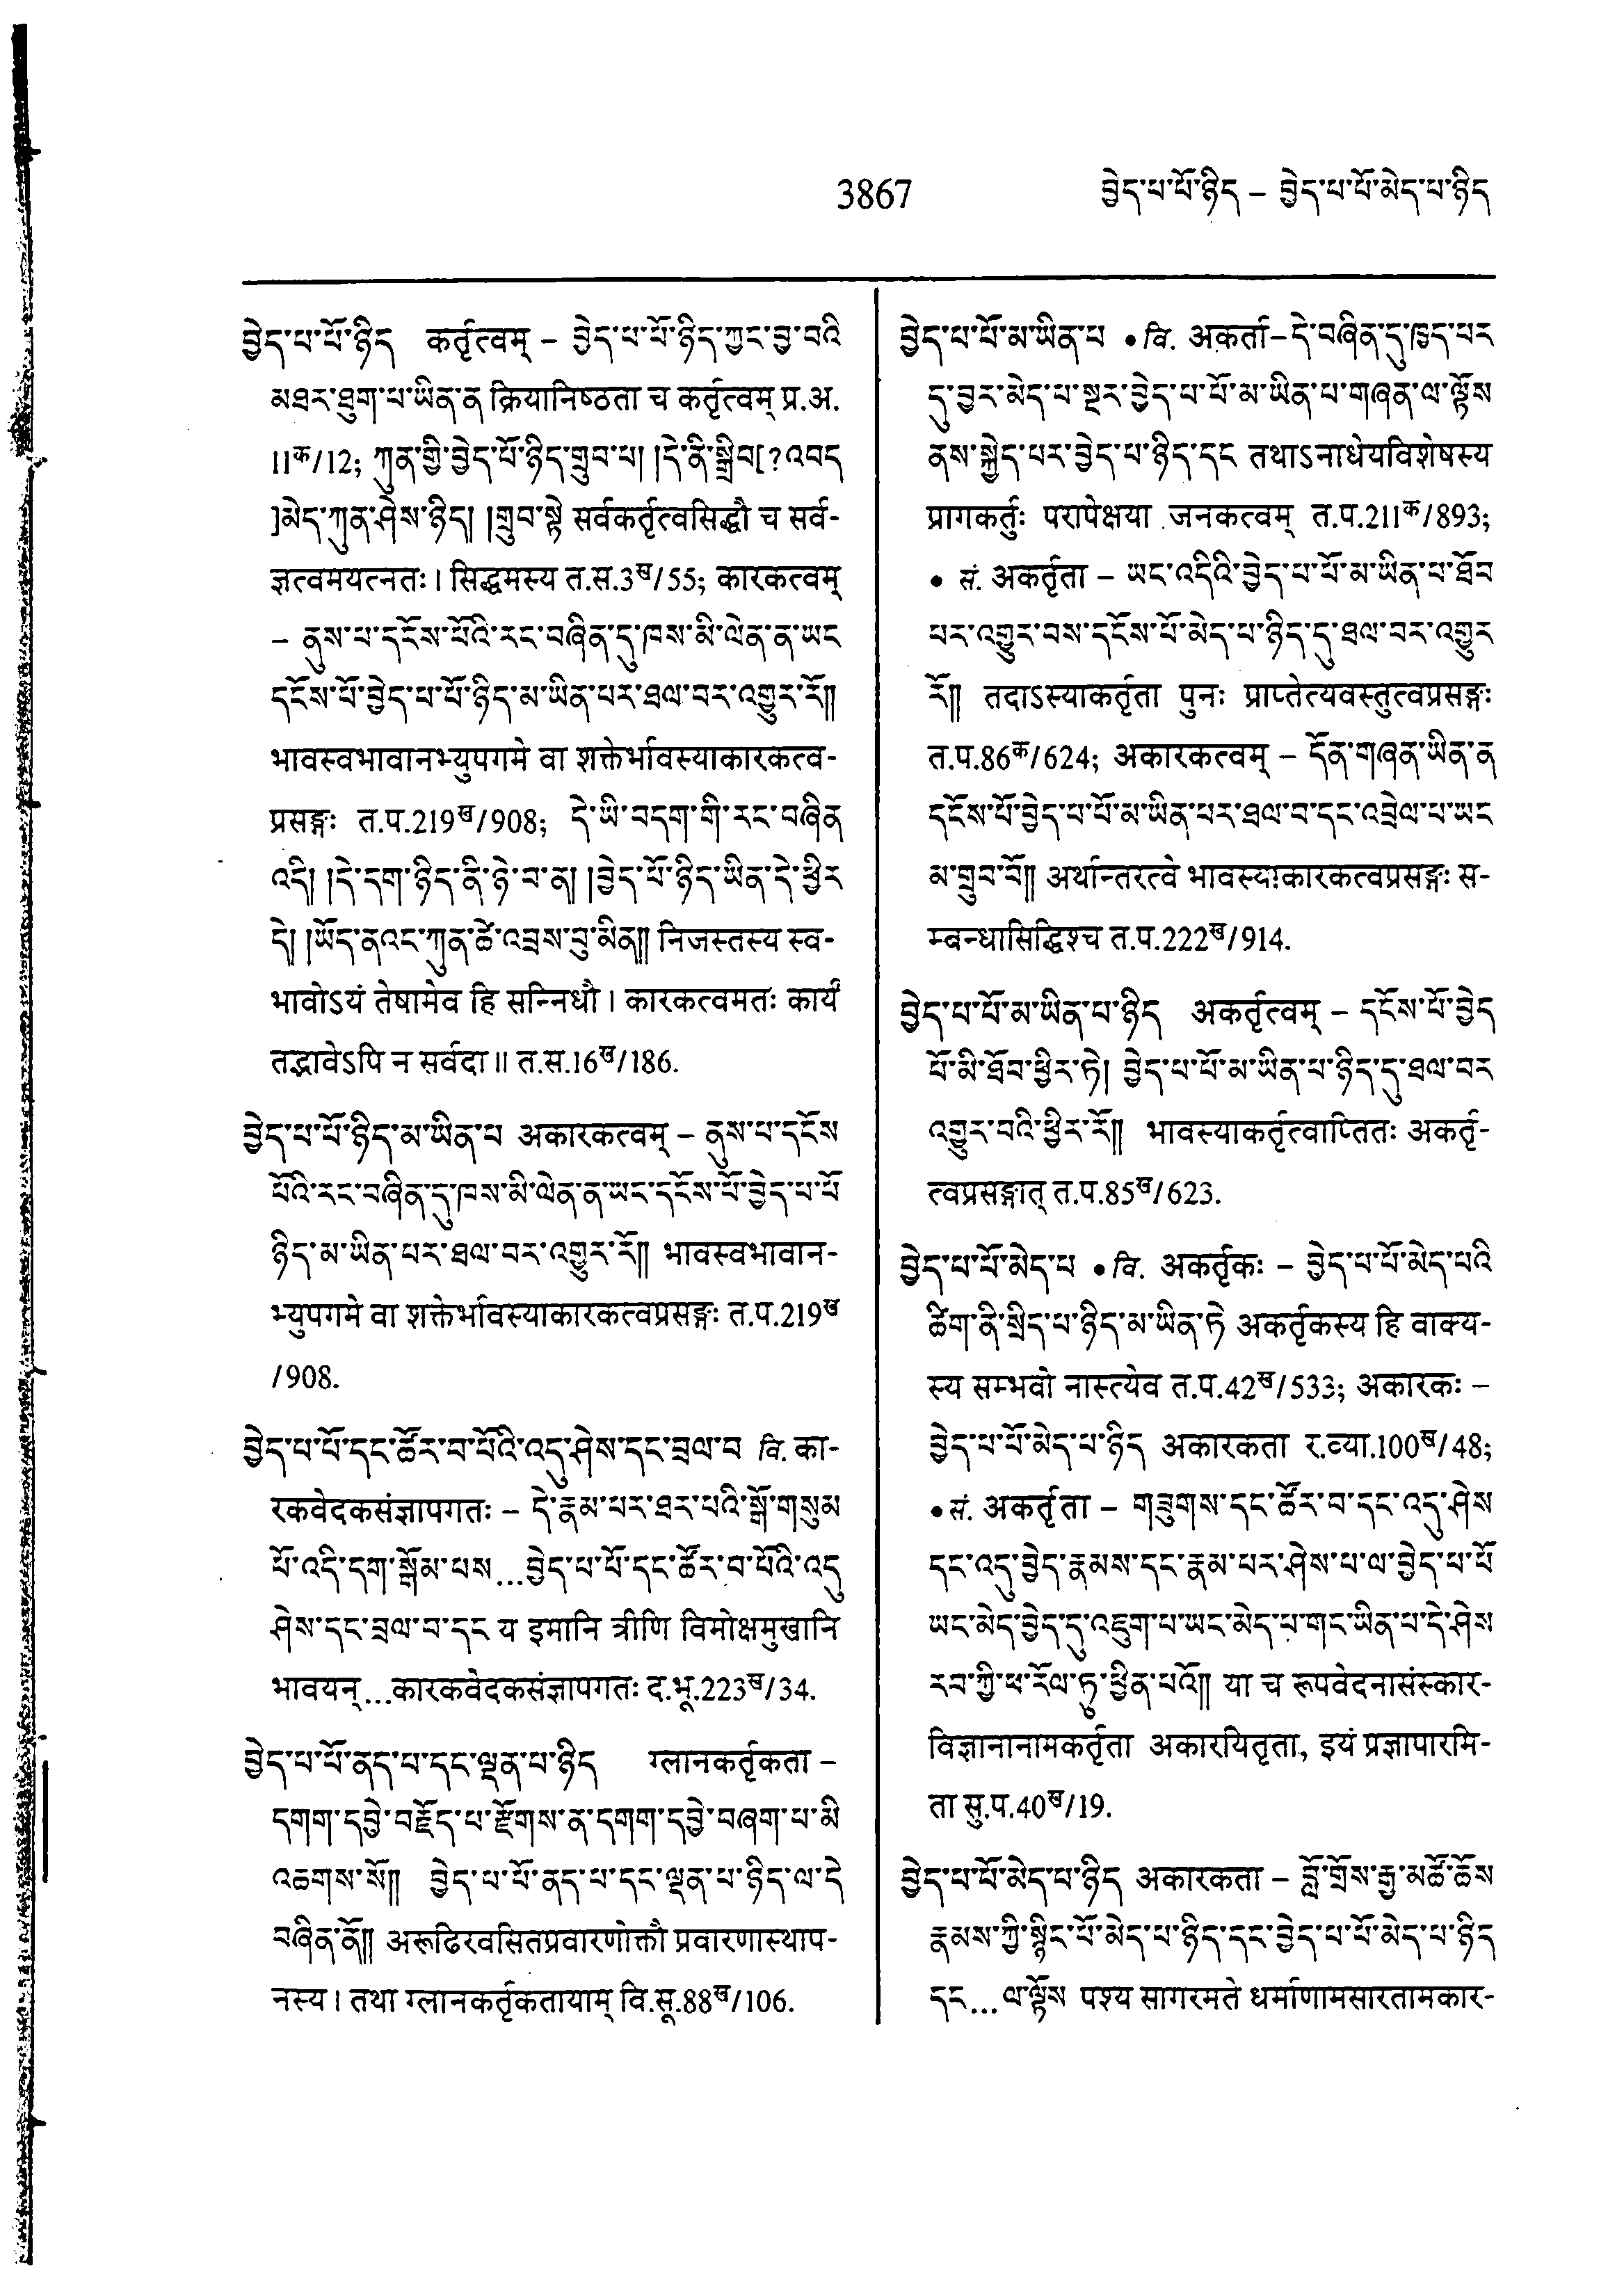 3867
བྱེད་པ་པོ་ཉིད – བྱེད་པ་པོ་མེད་པ་ཉིད
བྱེད་པ་པོ་ཉིད कर्तृत्वम् – བྱེད་པ་པོ་ཉིད་ཀྱང་བྱ་བའི
མཐར་ཐུག་པ་ཡིན་ན क्रियानिष्ठता च कर्तृत्वम् प्र.अ.
11क/12; ཀུན་གྱི་བྱེད་པོ་ཉིད་གྲུབ་པ། །དེ་ནི་སྒྲིབ[?འབད
]མེད་ཀུན་ཤེས་ཉིད། །གྲུབ་སྟེ सर्वकर्तृत्वसिद्धौ च सर्व-
ज्ञत्वमयत्नतः। सिद्धमस्य त.स.3ख/55; कारकत्वम्
– ནུས་པ་དངོས་པོའི་རང་བཞིན་དུ་ཁས་མི་ལེན་ན་ཡང
དངོས་པོ་བྱེད་པ་པོ་ཉིད་མ་ཡིན་པར་ཐལ་བར་འགྱུར་རོ༎
भावस्वभावानभ्युपगमे वा शक्तेर्भावस्याकारकत्व-
प्रसङ्गः त.प.219ख/908; དེ་ཡི་བདག་གི་རང་བཞིན
འདི། །དེ་དག་ཉིད་ནི་ཉེ་བ་ན། །བྱེད་པོ་ཉིད་ཡིན་དེ་ཕྱིར
དེ། །ཡོད་ནའང་ཀུན་ཚེ་འབྲས་བུ་མིན༎ निजस्तस्य स्व-
भावोऽयं तेषामेव हि सन्निधौ। कारकत्वमतः कार्यं
तद्भावेऽपि न सर्वदा॥ त.स.16ख/186.
བྱེད་པ་པོ་ཉིད་མ་ཡིན་པ अकारकत्वम् – ནུས་པ་དངོས
པོའི་རང་བཞིན་དུ་ཁས་མི་ལེན་ན་ཡང་དངོས་པོ་བྱེད་པ་པོ
ཉིད་མ་ཡིན་པར་ཐལ་བར་འགྱུར་རོ༎ भावस्वभावान-
भ्युपगमे वा शक्तेर्भावस्याकारकत्वप्रसङ्गः त.प.219ख
/908.
བྱེད་པ་པོ་དང་ཚོར་བ་པོའི་འདུ་ཤེས་དང་བྲལ་བ वि. का-
रकवेदकसंज्ञापगतः – དེ་རྣམ་པར་ཐར་པའི་སྒོ་གསུམ
པོ་འདི་དག་སྒོམ་པས...བྱེད་པ་པོ་དང་ཚོར་བ་པོའི་འདུ
ཤེས་དང་བྲལ་བ་དང य इमानि त्रीणि विमोक्षमुखानि
भावयन्...कारकवेदकसंज्ञापगतः द.भू.223ख/34.
བྱེད་པ་པོ་ནད་པ་དང་ལྡན་པ་ཉིད ग्लानकर्तृकता –
དགག་དབྱེ་བརྗོད་པ་རྫོགས་ན་དགག་དབྱེ་བཞག་པ་མི
འཆགས་སོ༎ བྱེད་པ་པོ་ནད་པ་དང་ལྡན་པ་ཉིད་ལ་དེ
བཞིན་ནོ༎ अरूढिरवसितप्रवारणोक्तौ प्रवारणास्थाप-
नस्य। तथा ग्लानकर्तृकतायाम् वि.सू.88ख/106.
བྱེད་པ་པོ་མ་ཡིན་པ •वि. अकर्ता–དེ་བཞིན་དུ་ཁྱད་པར
དུ་བྱར་མེད་པ་སྔར་བྱེད་པ་པོ་མ་ཡིན་པ་གཞན་ལ་ལྟོས
ནས་སྐྱེད་པར་བྱེད་པ་ཉིད་དང तथाऽनाधेयविशेषस्य
प्रागकर्तुः परापेक्षया जनकत्वम् त.प.211क/893;
• सं. अकर्तृता – ཡང་འདིའི་བྱེད་པ་པོ་མ་ཡིན་པ་ཐོབ
པར་འགྱུར་བས་དངོས་པོ་མེད་པ་ཉིད་དུ་ཐལ་བར་འགྱུར
རོ༎ तदाऽस्याकर्तृता पुनः प्राप्तेत्यवस्तुत्वप्रसङ्गः
त.प.86क/624; अकारकत्वम् – དོན་གཞན་ཡིན་ན
དངོས་པོ་བྱེད་པ་པོ་མ་ཡིན་པར་ཐལ་བ་དང་འབྲེལ་པ་ཡང
མ་གྲུབ་བོ༎ अर्थान्तरत्वे भावस्याकारकत्वप्रसङ्गः स-
म्बन्धासिद्धिश्च त.प.222ख/914.
བྱེད་པ་པོ་མ་ཡིན་པ་ཉིད अकर्तृत्वम् – དངོས་པོ་བྱེད
པོ་མི་ཐོབ་ཕྱིར་ཏེ། བྱེད་པ་པོ་མ་ཡིན་པ་ཉིད་དུ་ཐལ་བར
འགྱུར་བའི་ཕྱིར་རོ༎ भावस्याकर्तृत्वाप्तितः अकर्तृ-
त्वप्रसङ्गात् त.प.85ख/623.
བྱེད་པ་པོ་མེད་པ •वि. अकर्तृकः – བྱེད་པ་པོ་མེད་པའི
ཚིག་ནི་སྲིད་པ་ཉིད་མ་ཡིན་ཏེ अकर्तृकस्य हि वाक्य-
स्य सम्भवो नास्त्येव त.प.42ख/533; अकारकः –
བྱེད་པ་པོ་མེད་པ་ཉིད अकारकता र.व्या.100ख/48;
•सं. अकर्तृता – གཟུགས་དང་ཚོར་བ་དང་འདུ་ཤེས
དང་འདུ་བྱེད་རྣམས་དང་རྣམ་པར་ཤེས་པ་ལ་བྱེད་པ་པོ
ཡང་མེད་བྱེད་དུ་འཇུག་པ་ཡང་མེད་པ་གང་ཡིན་པ་དེ་ཤེས
རབ་ཀྱི་ཕ་རོལ་ཏུ་ཕྱིན་པའོ༎ या च रूपवेदनासंस्कार-
विज्ञानानामकर्तृता अकारयितृता, इयं प्रज्ञापारमि-
ता सु.प.40ख/19.
བྱེད་པ་པོ་མེད་པ་ཉིད अकारकता – བློ་གྲོས་རྒྱ་མཚོ་ཆོས
རྣམས་ཀྱི་སྙིང་པོ་མེད་པ་ཉིད་དང་བྱེད་པ་པོ་མེད་པ་ཉིད
དང...ལ་ལྟོས पश्य सागरमते धर्माणामसारतामकार-